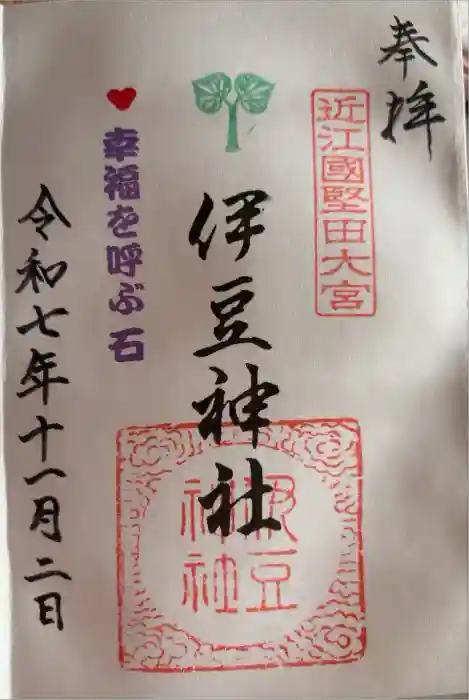 奉拝
近江國堅田大宮
伊豆神社
伊豆
神社
幸福を呼ぶ石
令和七年十一月二日